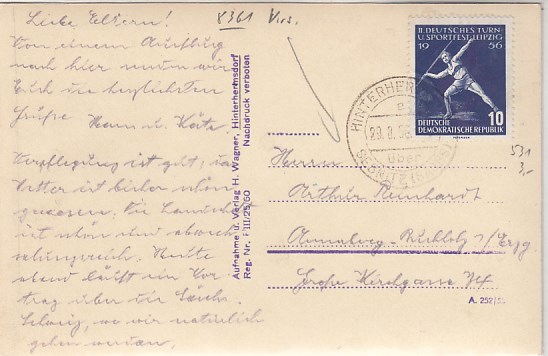 Liebe Eltern!
Von einem Ausflug
nach hier senden wir
Euch die herzlichsten
Grüße
Hann u. Käte.
Verpflegung ist gut; das
Wetter ist bisher schön
gewesen. Die Landschaft
ist schön und abwechs-
lungsreich. Heute
abend läuft ein Vor
trag über die Sächs.
Schweiz, wo wir natürlich
gehen werden.
8361
Aufnahme u. Verlag H. Wagner, Hinterhermsdorf
Reg. Nr. F III/25/60 Nachdruck verboten
II. DEUTSCHES TURN-
U. SPORTFEST LEIPZIG
19 56
10
DEUTSCHE
DEMOKRATISCHE REPUBLIK
HINTERHER
über
SEBNITZ
531
3,-
Herrn
Arthur Reinhardt
Annaberg-Buchholz 1/Erzg
Große Kirchgasse
A. 252/5